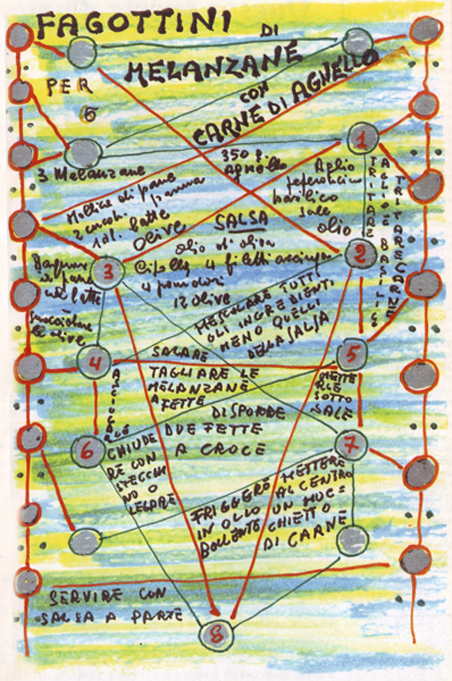 FAGOTTINI DI
MELANZANE
CON
CARNE DI AGNELLO
PER
6
3 Melanzane
350 g.
Agnello
Mollica di pane
2 cucch. panna
1 dl. latte
Olive
Aglio
peperoncino
basilico
sale
olio
1
TRITARE
AGLIO E BASILICO
TRITARE CARNE
SALSA
olio di oliva
Cipolla 4 filetti acciuga
4 pomodori
12 olive
2
3
Bagnare
nel latte
snocciolare
le olive
MESCOLARE TUTTI
GLI INGREDIENTI
MENO QUELLI
DELLA SALSA
4
SALARE
TAGLIARE LE
MELANZANE
A FETTE
5
METTE
RLE
SOTTO
SALE
ASCIUGARLE
DISPORRE
DUE FETTE
A CROCE
6
7
CHIUDE
RE CON
STECCHI
NO O
LEGARE
METTERE
AL CENTRO
UN MUC=
CHIETTO
DI CARNE
FRIGGERE
IN OLIO
BOLLENTE
SERVIRE CON
SALSA A PARTE
8